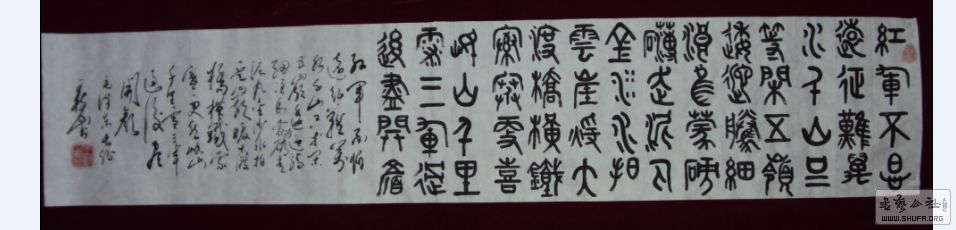 紅軍不怕
遠征難萬
水千山只
等閑五嶺
逶迤騰細
浪烏蒙磅
礴走泥丸
金沙水拍
雲崖煖大
渡橋橫鐵
索寒更喜
岷山千里
雪三軍過
後盡開顏
紅軍不怕
遠征難萬
水千山只等
閑五嶺逶迤騰
細浪烏蒙磅礴走
泥丸金沙水拍
雲崖暖大渡
橋橫鐵索
寒更喜岷山
千里雪三軍
過後盡
開顏
毛澤東長征
WWW.SHUFA.ORG